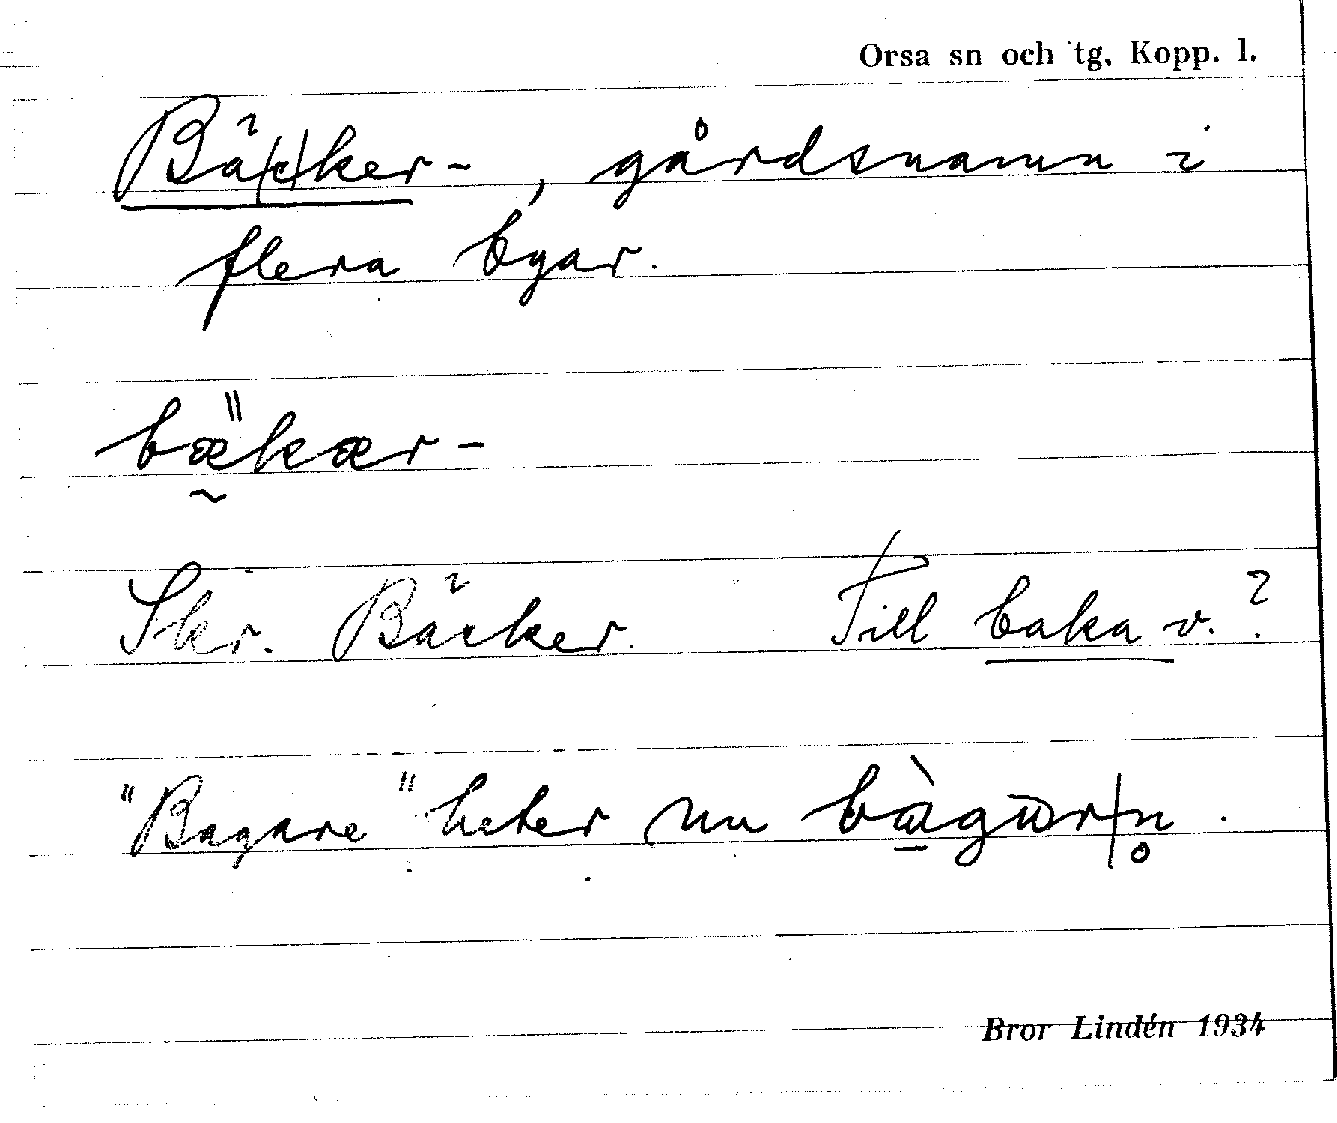 Orsa sn och tg, Kopp. l.
Bä(c)ker-, gårdsnamn i
flera byar.
bæ̰̎kær-
Skr. Bäcker. Till baka v.?
"Bagare" heter nu bàgɯr|n̥.
Bror Lindén 1934